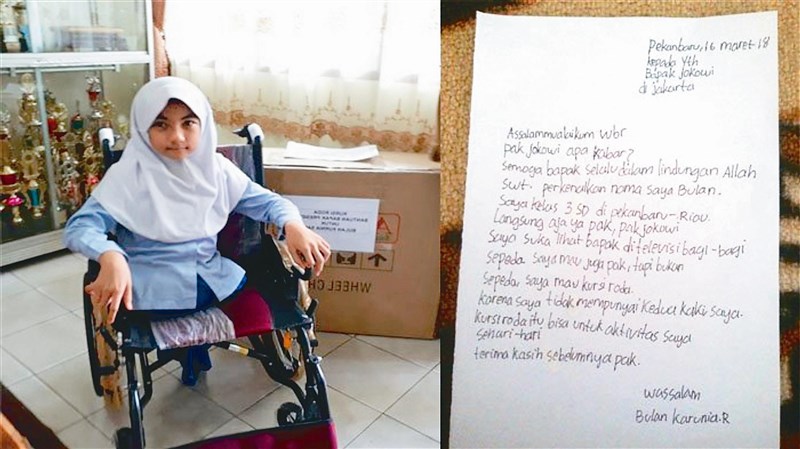 KURSI RODA
BANTUAN BAPAK PRESIDEN
UNTUK
WHEEL CH
Pekanbaru, 16 maret 18
kepada Yth
Bapak Jokowi
di jakarta
Assalammualaikum wbr
pak jokowi apa kabar?
semoga bapak selalu dalam lindungan Allah
swt. perkenalkan nama saya Bulan.
Saya kelas 3 SD di pekanbaru-Riau.
Langsung aja ya pak, pak jokowi
Saya suka lihat bapak di televisi bagi-bagi
sepeda saya mau juga pak, tapi bukan
sepeda, saya mau kursi roda.
karena saya tidak mempunyai kedua kaki saya.
kursi roda itu bisa untuk aktivitas saya
sehari-hari
terima kasih sebelumnya pak.
wassalam
Bulan Karunia.R